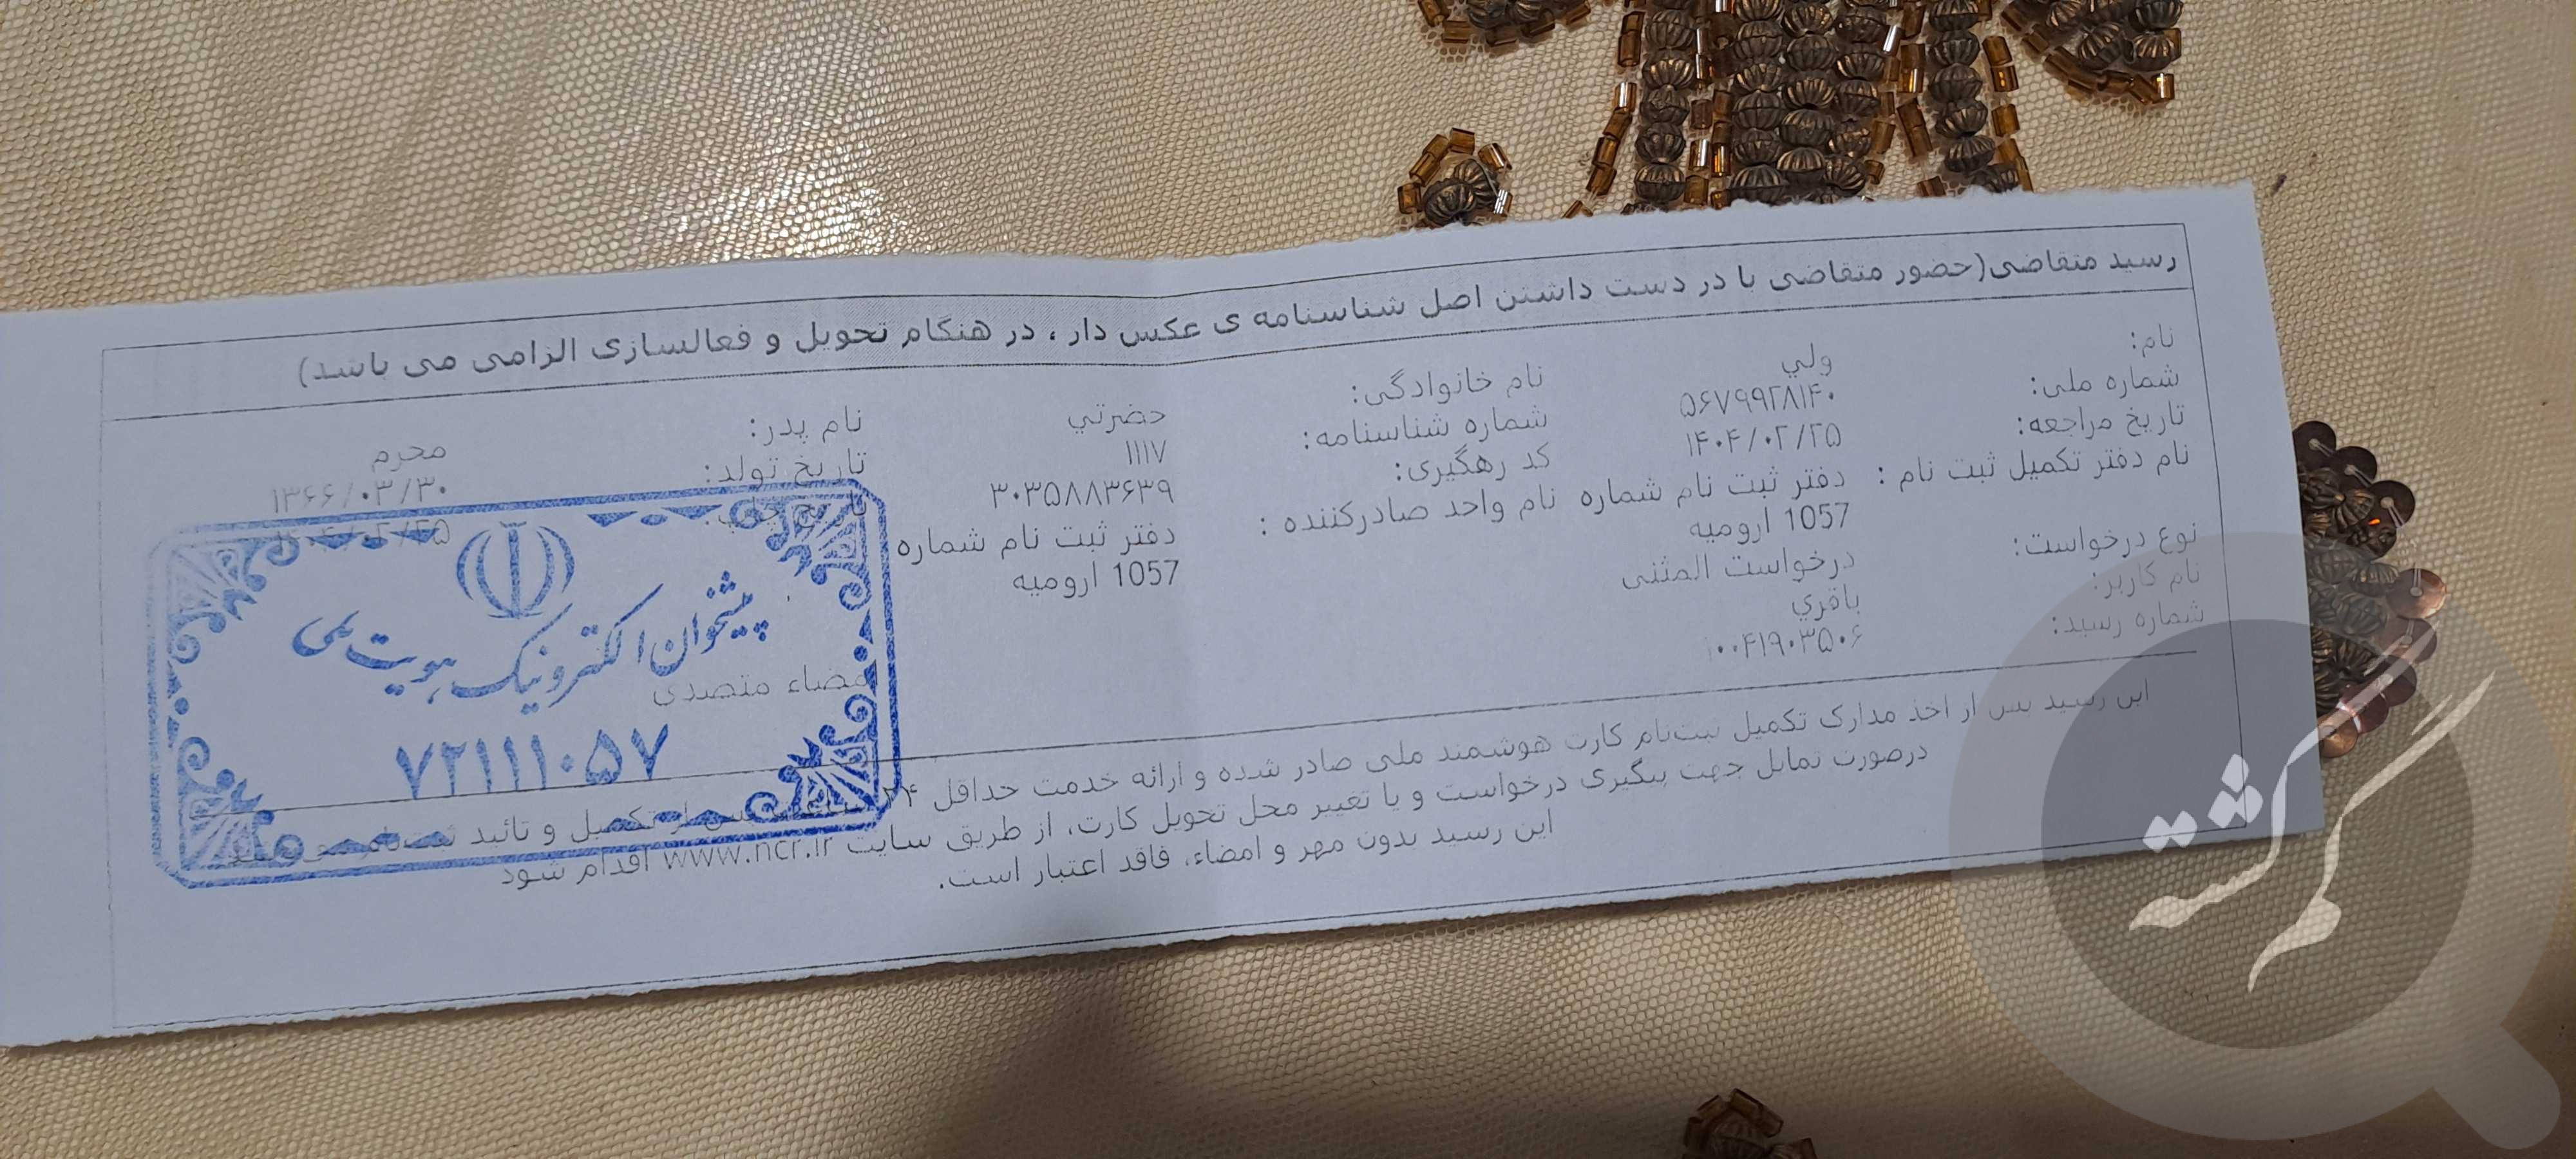 رسید متقاضی(حضور متقاضی با در دست داشتن اصل شناسنامه ی عکس دار ، در هنگام تحویل و فعالسازی الزامی می باشد)
نام: ولي نام خانوادگی: حضرتي نام پدر: محرم
شماره ملی: ۵۶۷۹۹۲۸۱۴۰ شماره شناسنامه: ۱۱۱۷ تاریخ تولد: ۱۳۶۶/۰۳/۳۰
تاریخ مراجعه: ۱۴۰۴/۰۲/۲۵ کد رهگیری: ۳۰۳۵۸۸۳۶۳۹ تاریخ چاپ:
نام دفتر تکمیل ثبت نام : دفتر ثبت نام شماره نام واحد صادرکننده : دفتر ثبت نام شماره
1057 ارومیه 1057 ارومیه
نوع درخواست: درخواست المثنی
نام کاربر: باقري
شماره رسید: ۱۰۰۴۱۹۰۳۵۰۶
امضاء متصدی
پیشخوان الکترونیک هویت ملی
۷۲۱۱۱۰۵۷
این رسید پس از اخذ مدارک تکمیل ثبت‌نام کارت هوشمند ملی صادر شده و ارائه خدمت حداقل ۲۴ ساعت پس از تکمیل و تائید ثبت‌نام
درصورت تمایل جهت پیگیری درخواست و یا تغییر محل تحویل کارت، از طریق سایت www.ncr.ir اقدام شود
این رسید بدون مهر و امضاء، فاقد اعتبار است.
گم گشته